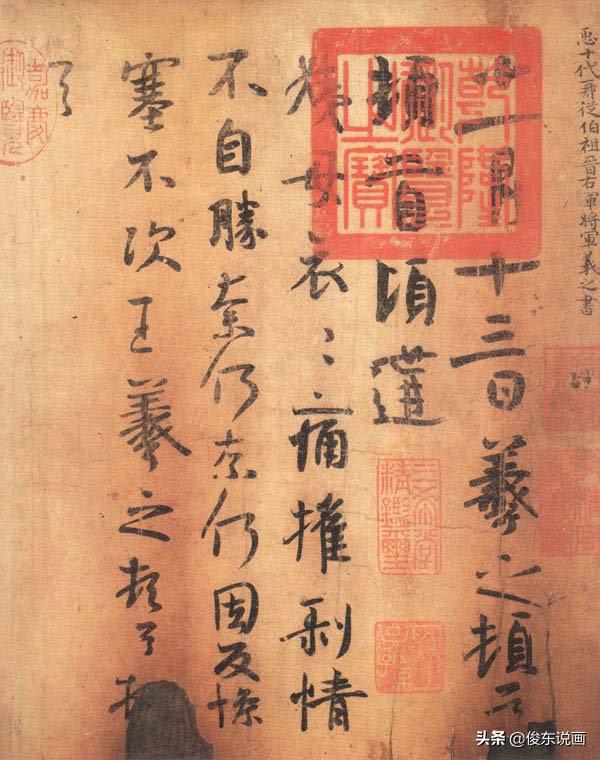 十代再從伯祖晉右軍將軍羲之書
十一月十三日羲之頓首
頓首頃遘
姨母哀〻痛摧剝情
不自勝奈何奈何因反慘
塞不次王羲之頓首頓
首
乾隆御覽之寶
三希堂精鑑璽
嘉慶御覽
头条 @俊东说画